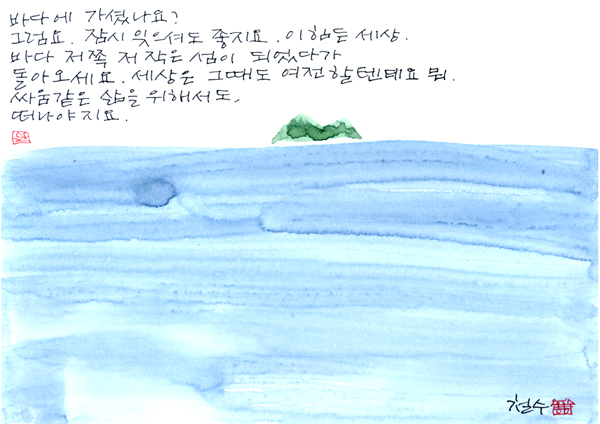 바다에 가셨나요?
그럼요. 잠시 잊으셔도 좋지요. 이 힘든 세상.
바다 저쪽 저 작은 섬이 되었다가
돌아오세요. 세상은 그때도 여전할텐데요 뭐.
싸움같은 삶을 위해서도,
떠나야지요.
김철수